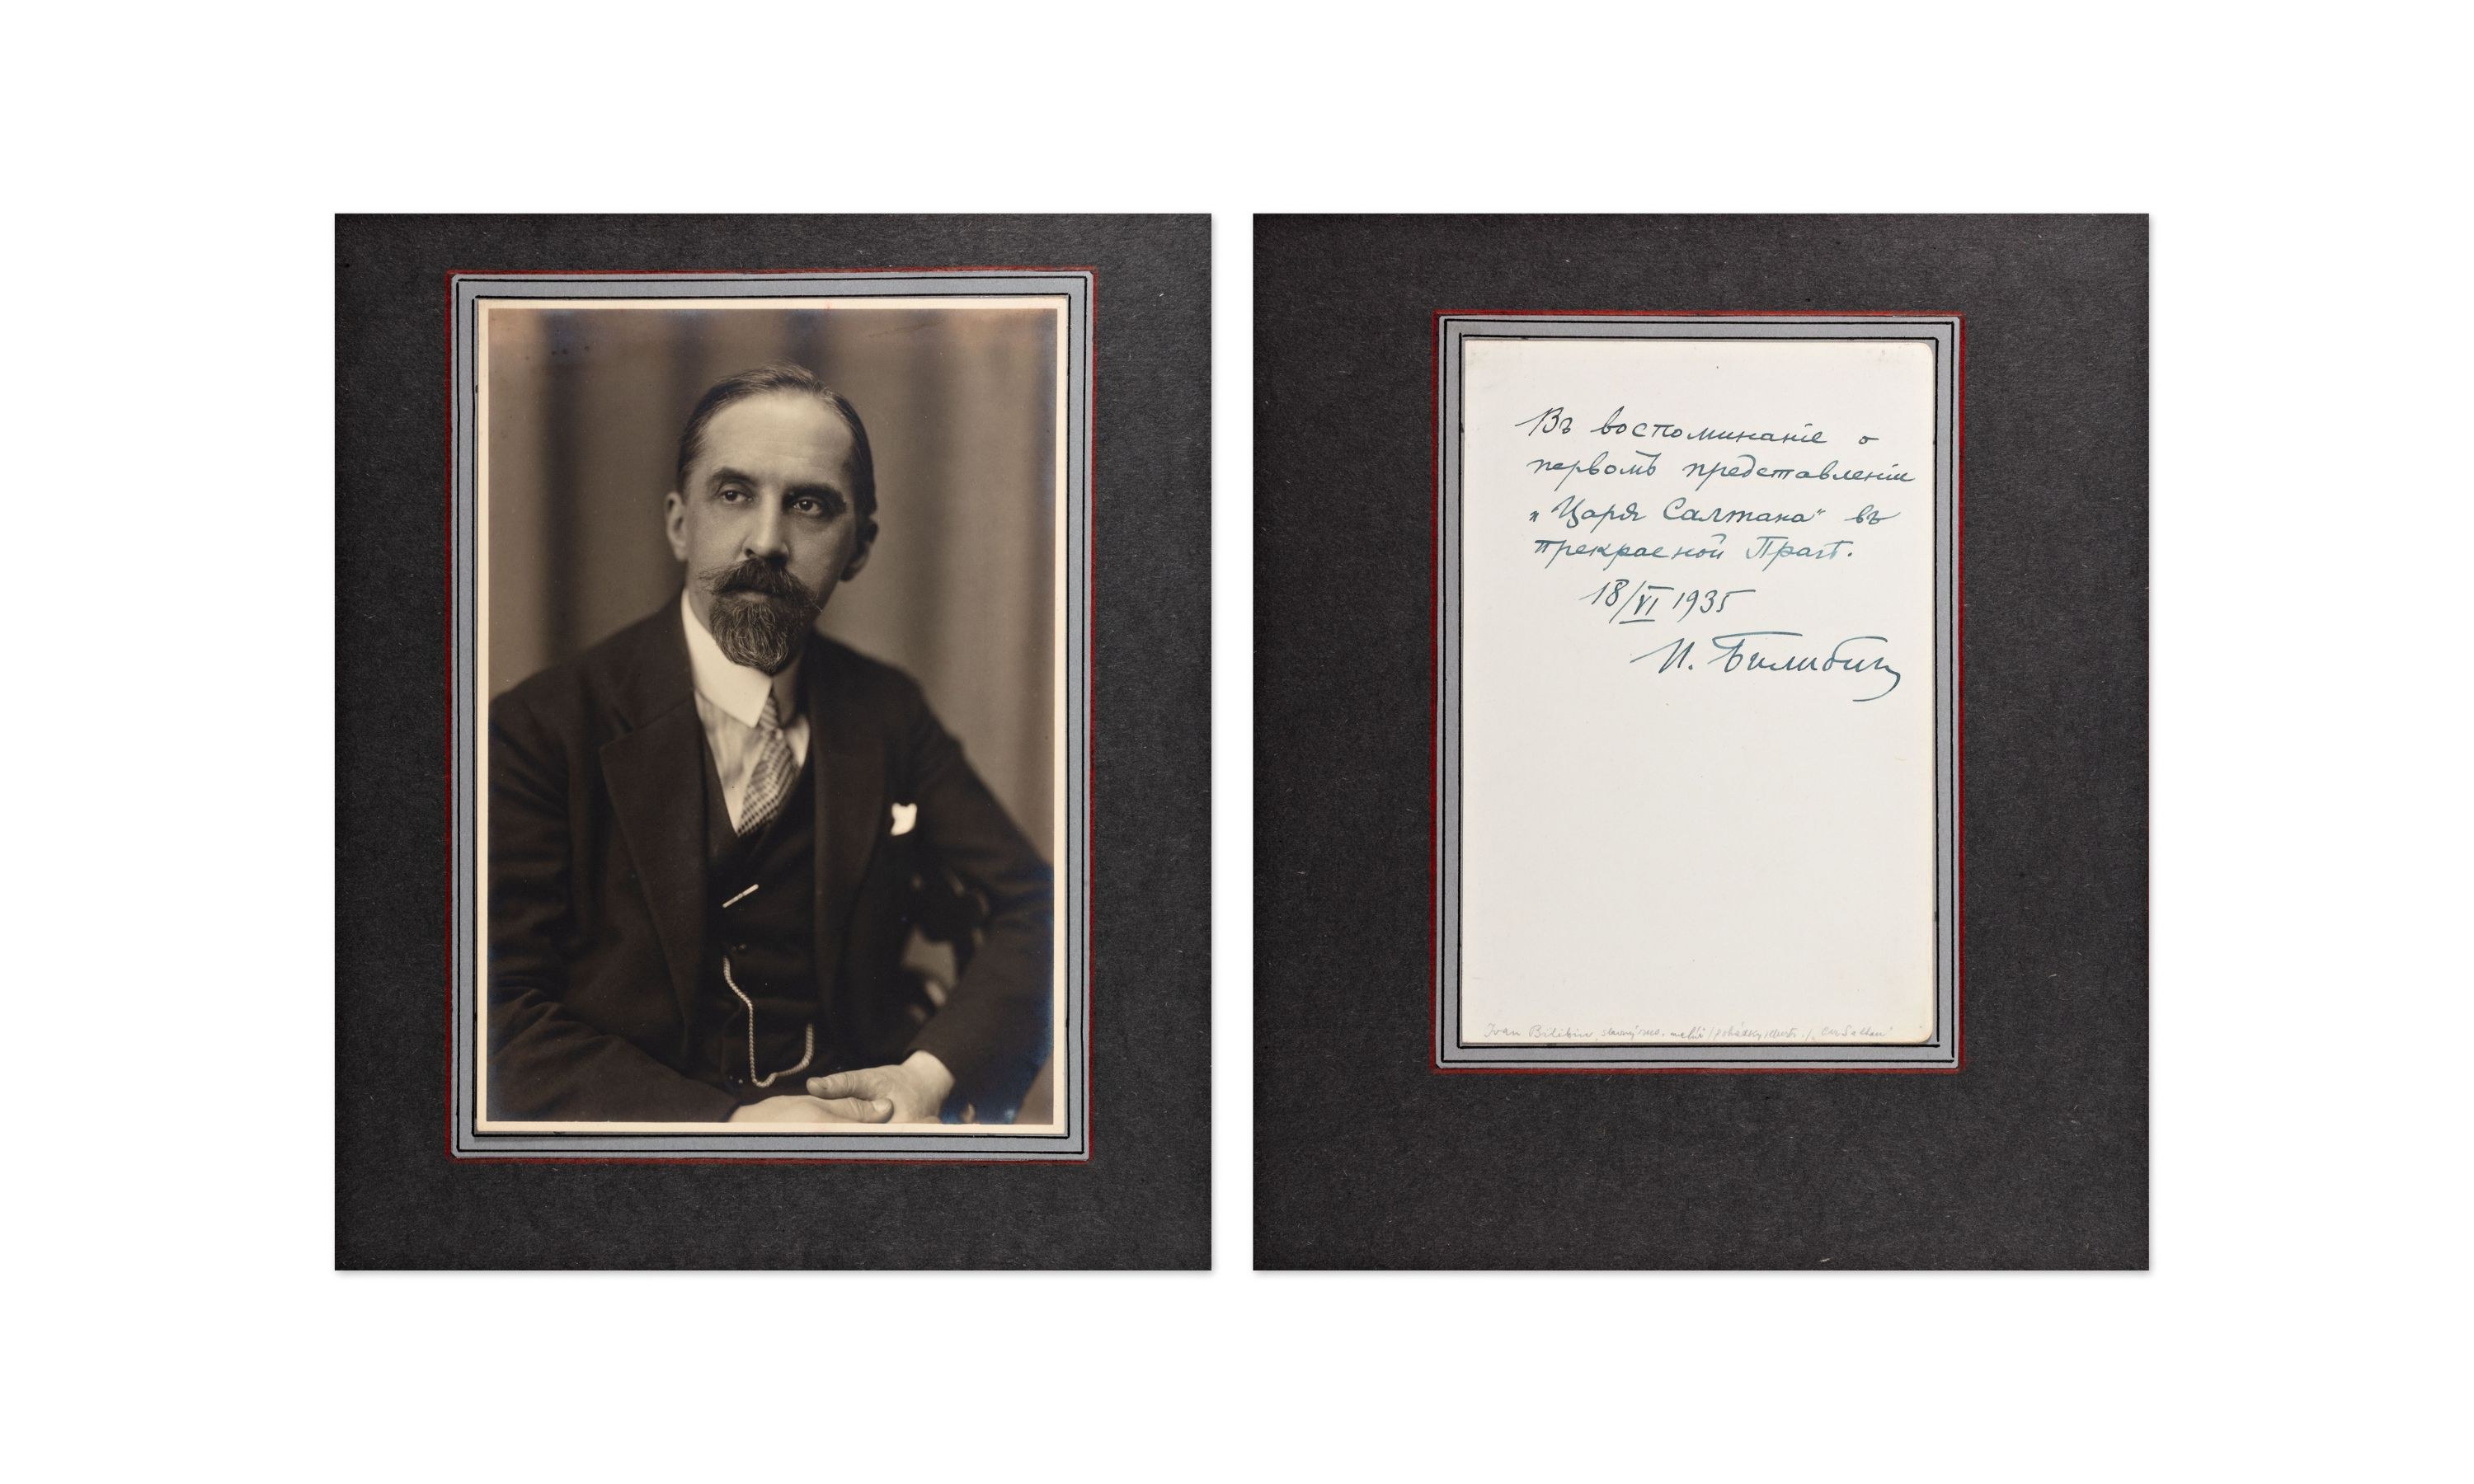 Въ воспоминаніе о
первомъ представленіи
„Царя Салтана“ въ
прекрасной Прагѣ.
18/VI 1935
И. Билибин
Ivan Bilibin, slavný malíř "Car Saltan"